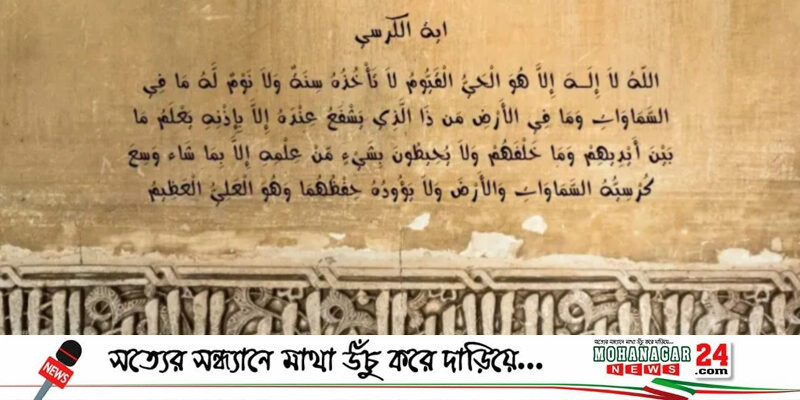 اية الكرسي
اللّهُ لاَ إِلَـهَ إِلاَّ هُوَ الْحَيُّ الْقَيُّومُ لاَ تَأْخُذُهُ سِنَةٌ وَلاَ نَوْمٌ لَّهُ مَا فِي
السَّمَاوَاتِ وَمَا فِي الأَرْضِ مَن ذَا الَّذِي يَشْفَعُ عِنْدَهُ إِلاَّ بِإِذْنِهِ يَعْلَمُ مَا
بَيْنَ أَيْدِيهِمْ وَمَا خَلْفَهُمْ وَلاَ يُحِيطُونَ بِشَيْءٍ مِّنْ عِلْمِهِ إِلاَّ بِمَا شَاء وَسِعَ
كُرْسِيُّهُ السَّمَاوَاتِ وَالأَرْضَ وَلاَ يَؤُودُهُ حِفْظُهُمَا وَهُوَ الْعَلِيُّ الْعَظِيمُ
NEWS
সত্যের সন্ধ্যানে মাথা উঁচু করে দাড়িয়ে...
সত্যের সন্ধ্যানে মাথা উঁচু করে দাড়িয়ে...
MOHANAGAR 24
NEWS .com